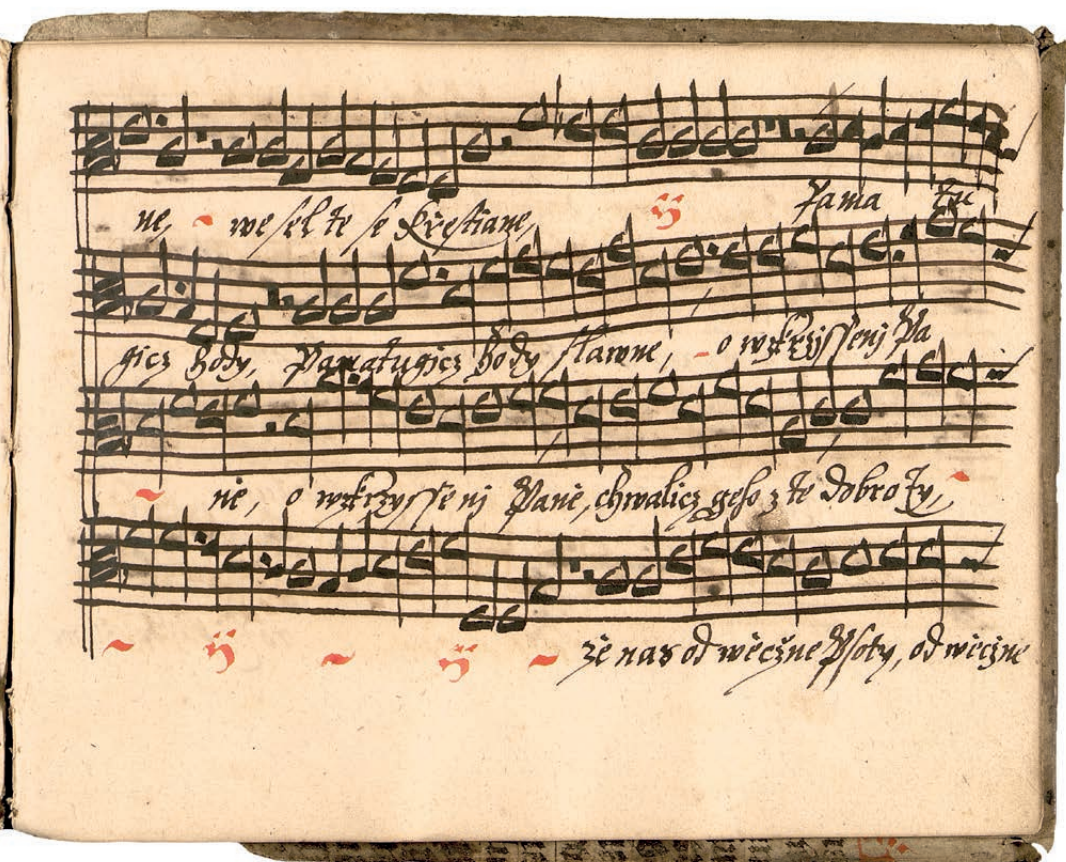 ne, ~ weselte se Křestiane, ij Pama tu
gicz hody, Pamatugicz hody slawne, ~ o wzkrzyssenj Pa
~ nie, o wzkrzyssenj Panie, chwalicz geho z te dobroty, ~
~ ij ~ ij ~ že nas od wěczne Psoty, od wěczne